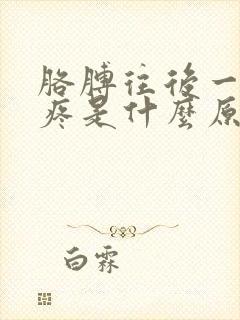 胳膊往后一
疼是什麼原
白霖